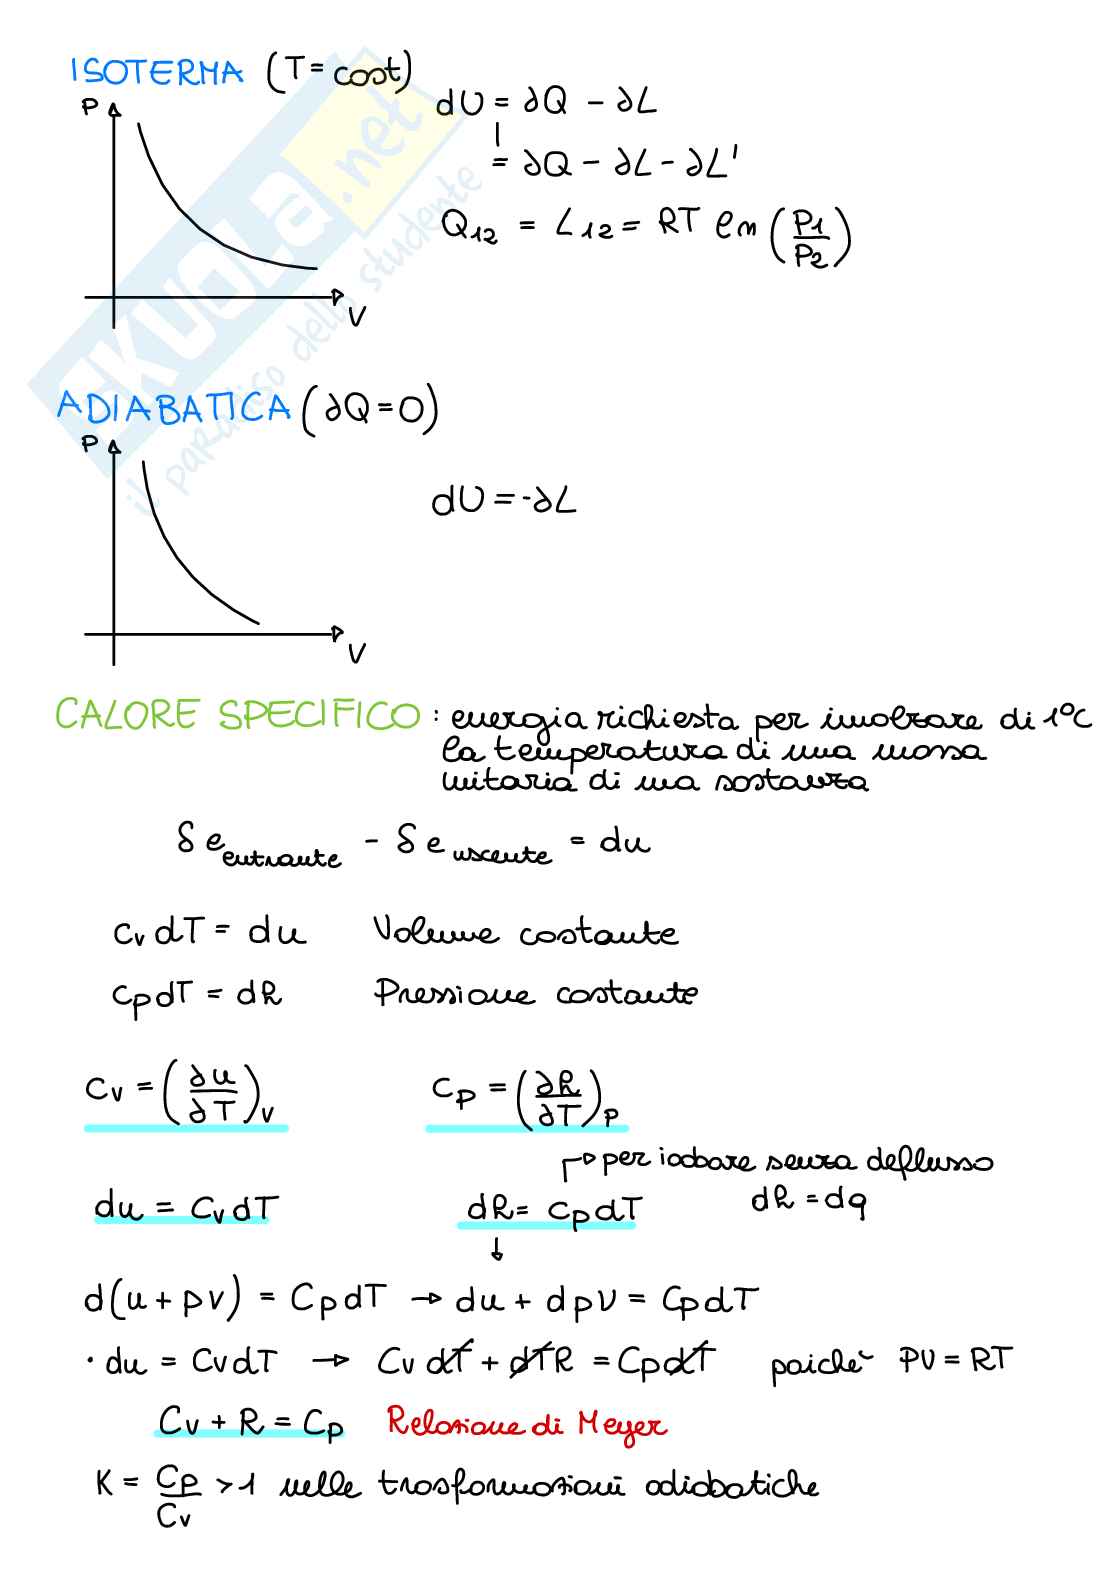 ISOTERMA (T = cost)
P
dU = ∂Q - ∂L
= ∂Q - ∂L - ∂L'
Q12 = L12 = RT ln (P1/P2)
V
SKUOLA.net
il paradiso dello studente
ADIABATICA (∂Q = 0)
P
dU = -∂L
V
CALORE SPECIFICO : energia richiesta per innalzare di 1°C
la temperatura di una massa
unitaria di una sostanza
δe entrante - δe uscente = du
cv dT = du Volume costante
cp dT = dh Pressione costante
Cv = (∂u/∂T)v Cp = (∂h/∂T)p
per isobare senza deflusso
du = Cv dT dh = Cp dT dh = dq
d(u + pv) = Cp dT → du + dpv = Cp dT
· du = Cv dT → Cv dT + dT R = Cp dT poichè PV = RT
Cv + R = Cp Relazione di Meyer
K = Cp/Cv > 1 nelle trasformazioni adiabatiche